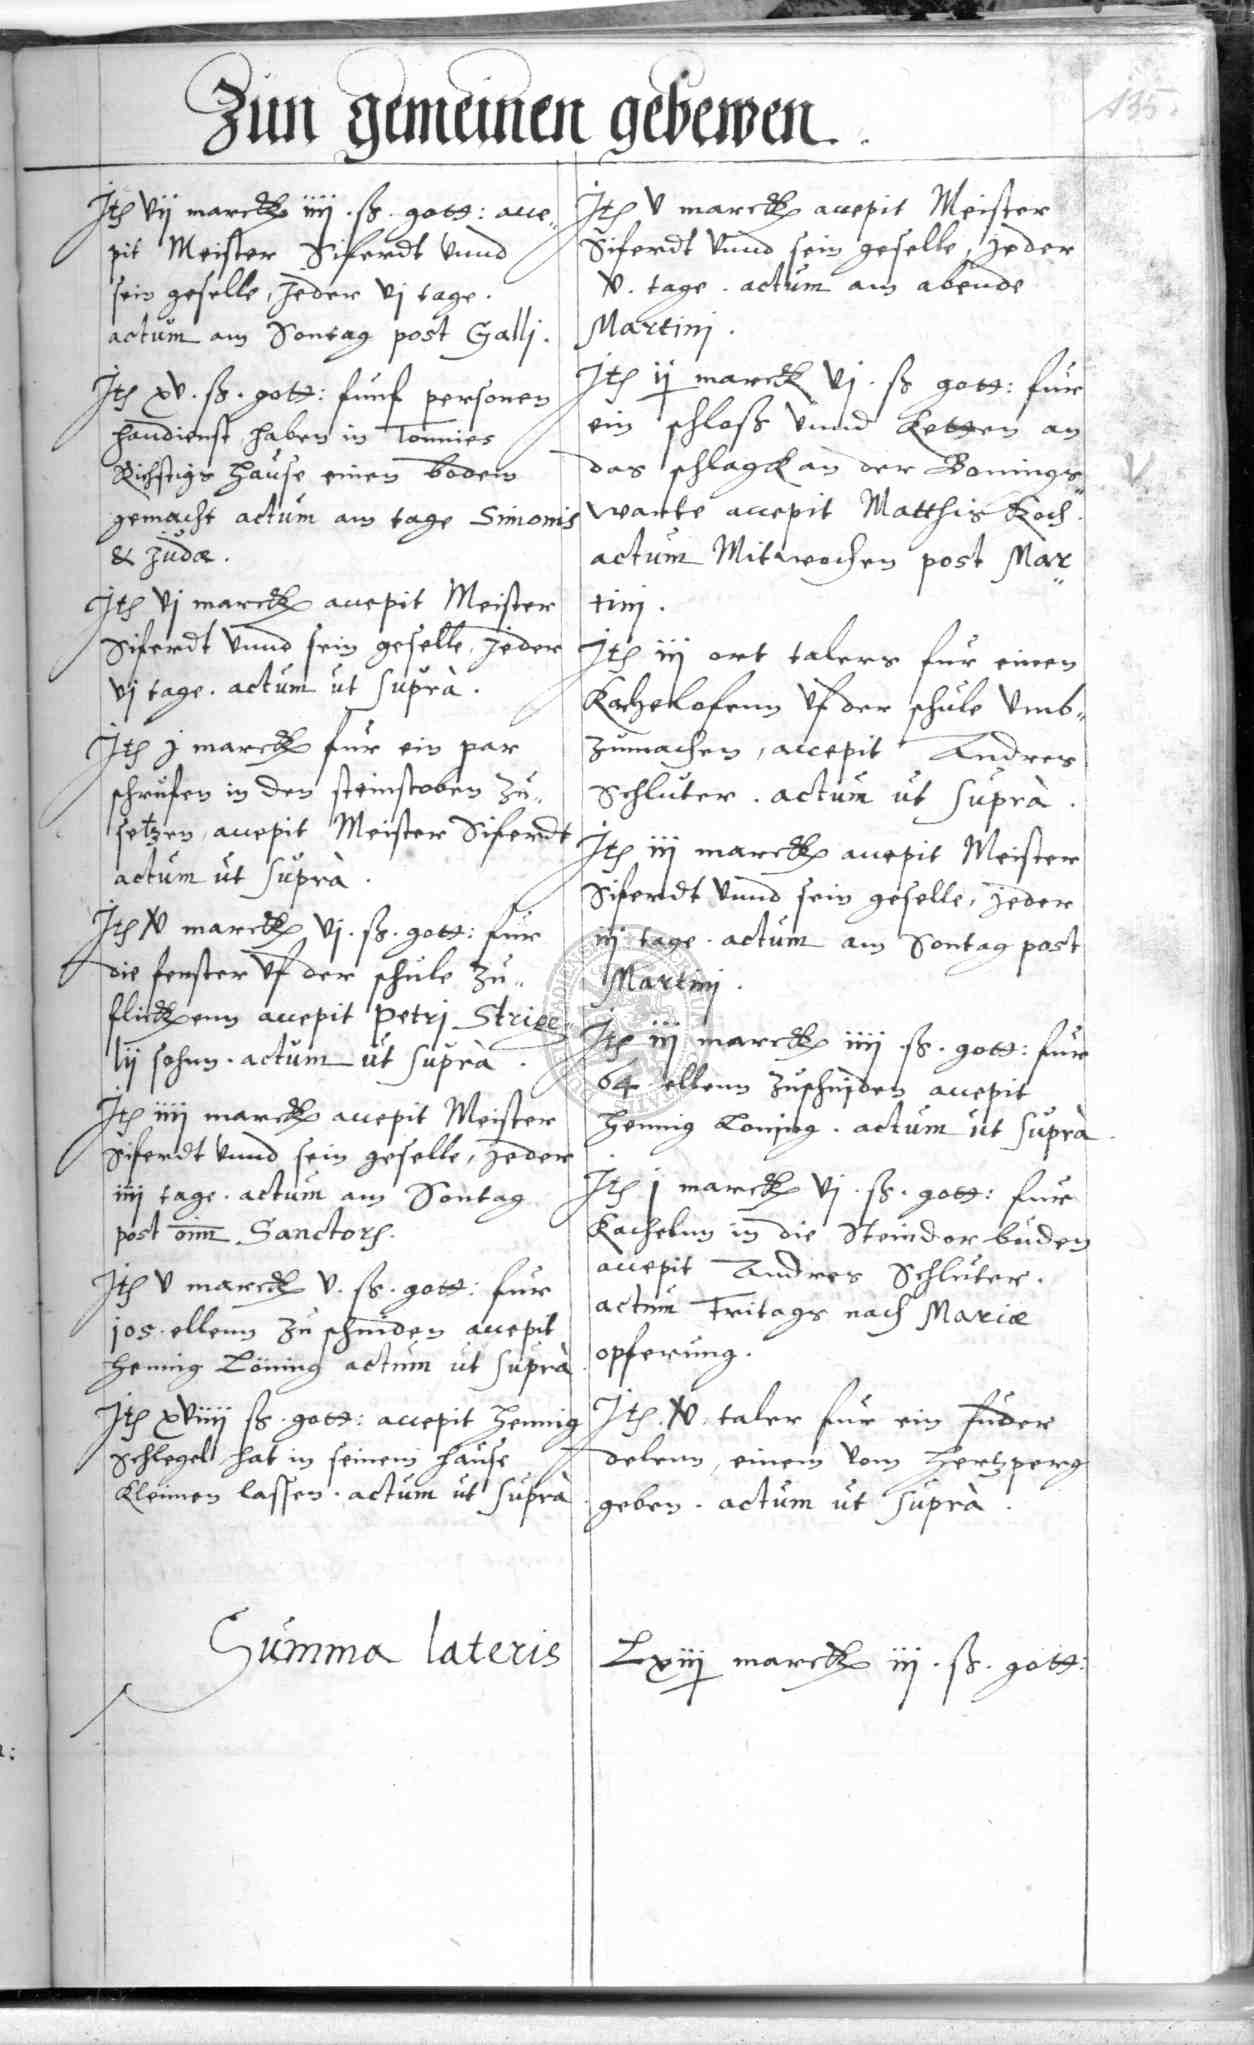 Zun gemeinen gebewen.
135.
Itē vij marckē iiij . ß . gott: acce„
pit Meister Siferdt vnnd
sein geselle, jeder vj tage .
actum am Sontag post Galli .
Itē xv . ß . gott: funf personen
handienst haben in Tonnies
Richstigs hause einen bodem
gemacht actum am tage Simonis
& Judæ .
Itē vj marckē accepit Meister
Siferdt vnnd sein geselle, jeder
vj tage . actum ut suprà .
Itē j marckē fur ein par
schrufen in den steinstoben zu„
setzen, accepit Meister Siferdt
actum ut suprà .
Itē marckē vj . ß . gott: fur
die fenster vf der schule zu„
flickenn accepit Petri Strige„
lij sohnn . actum ut suprà .
Itē iiij marckē accepit Meister
Siferdt vnnd sein geselle, jeder
iiij tage . actum am Sontag
post oīm Sanctorē .
Itē v marckē v . ß . gott: fur
105 . ellenn zu schniden accepit
Hennig Löning actum ut suprà
Itē xviiij ß . gott: accepit Hennig
Schlegel hat in seinem hause
kleimen lassen . actum ut suprà .
Summa lateris
Itē v marckē accepit Meister
Siferdt vnnd sein geselle, jeder
v . tage . actum am abende
Martinj .
Itē ij marckē vj . ß gott: fur
ein schloß vnnd Ketten an
das schlagk an der Bonings„
warte accepit Matthis Koch .
V
actum Mitwochen post Mar„
tinj .
Itē iij ort talers fur einen
Kachelofenn vf der schule vmb„
zumachen, accepit Andres
Schluter . actum ut suprà .
Itē iij marckē accepit Meister
Siferdt vnnd sein geselle, jeder
iij tage . actum am Sontag post
Martinj .
Itē iij marckē iiij . ß . gott: fur
64 ellenn zuschniden accepit
Hennig Loning . actum ut suprà .
Itē j marckē vj . ß . gott: fur
Kachelnn in die Steindor buden
accepit Andres Schluter .
actum Fritags nach Mariæ
opferung .
Itē taler fur ein fuder
delenn, einem vom Hertzperg
geben . actum ut suprà .
Lxiij marckē iij . ß . gott: